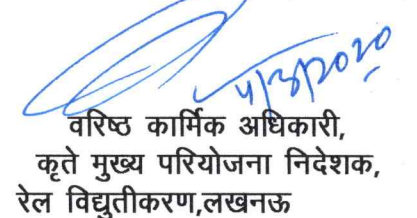 4/3/2020
वरिष्ठ कार्मिक अधिकारी,
कृते मुख्य परियोजना निदेशक,
रेल विद्युतीकरण,लखनऊ